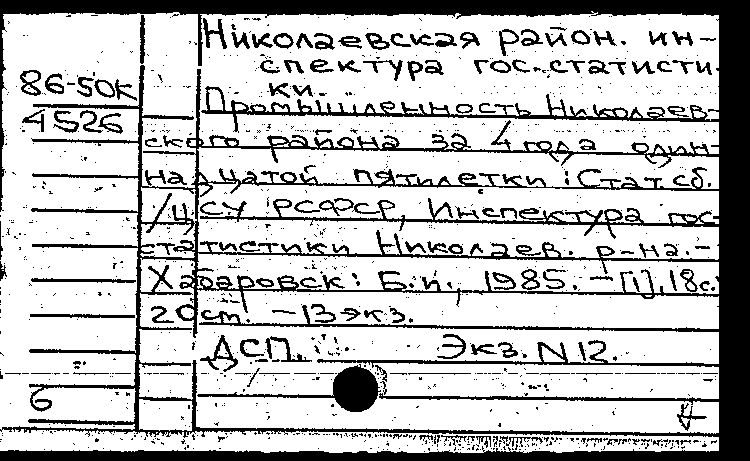 Николаевская район. ин-
спектура гос. статисти-
ки.
86-50К
4526
Промышленность Николаев-
ского района за 4 года один-
надцатой пятилетки : Стат. сб.
/ ЦСУ РСФСР, Инспектура гос-
статистики Николаев. р-на. -
Хабаровск : Б.и., 1985. - [1], 18 с.
20 см. - 13 экз.
ДСП. Экз. N 12.
6